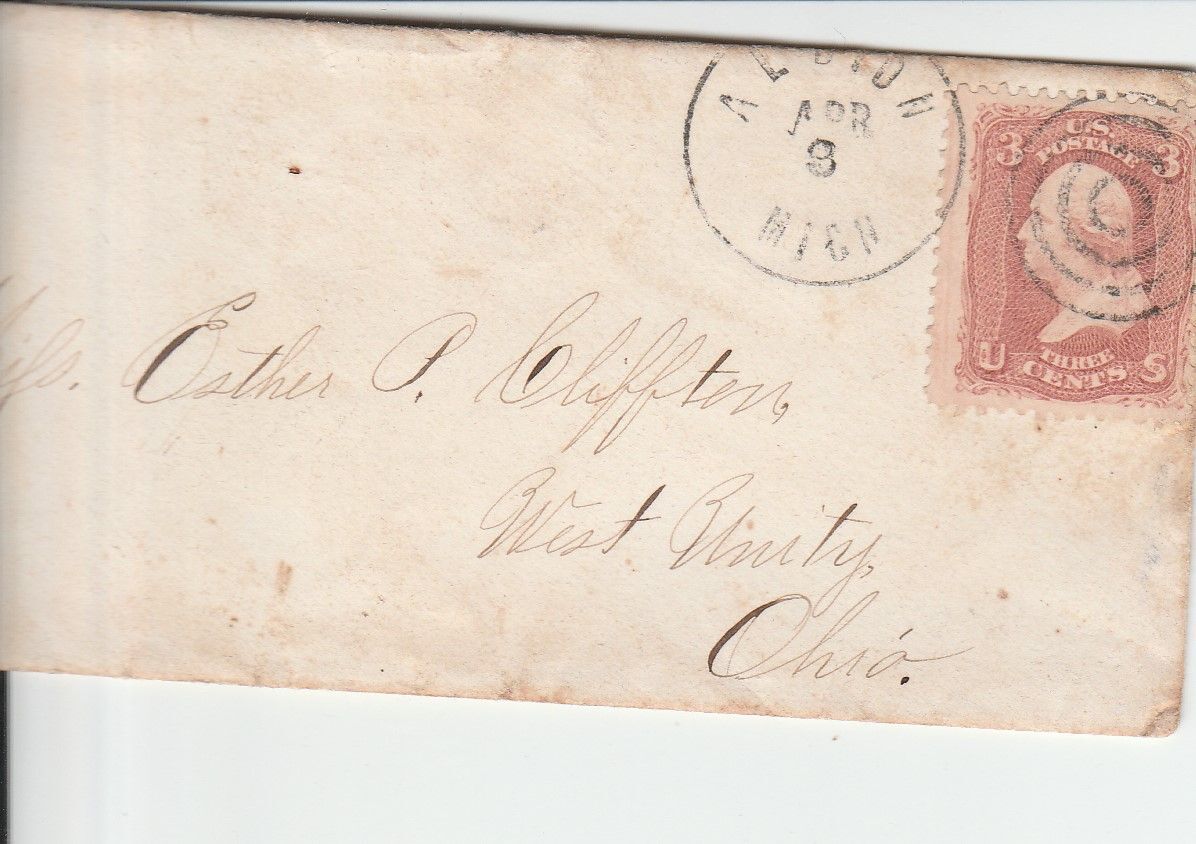 ALBION
APR
8
MICH
3 U.S. 3
POSTAGE
U THREE S
CENTS
Esther P. Cliffton,
West Unity,
Ohio.